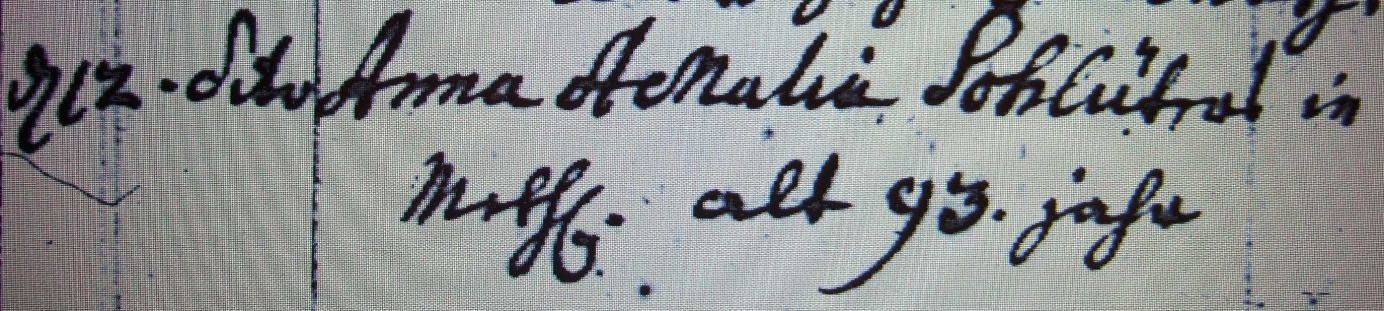 712. dito Anna Amalia Schlüters in
alt 93. jahr